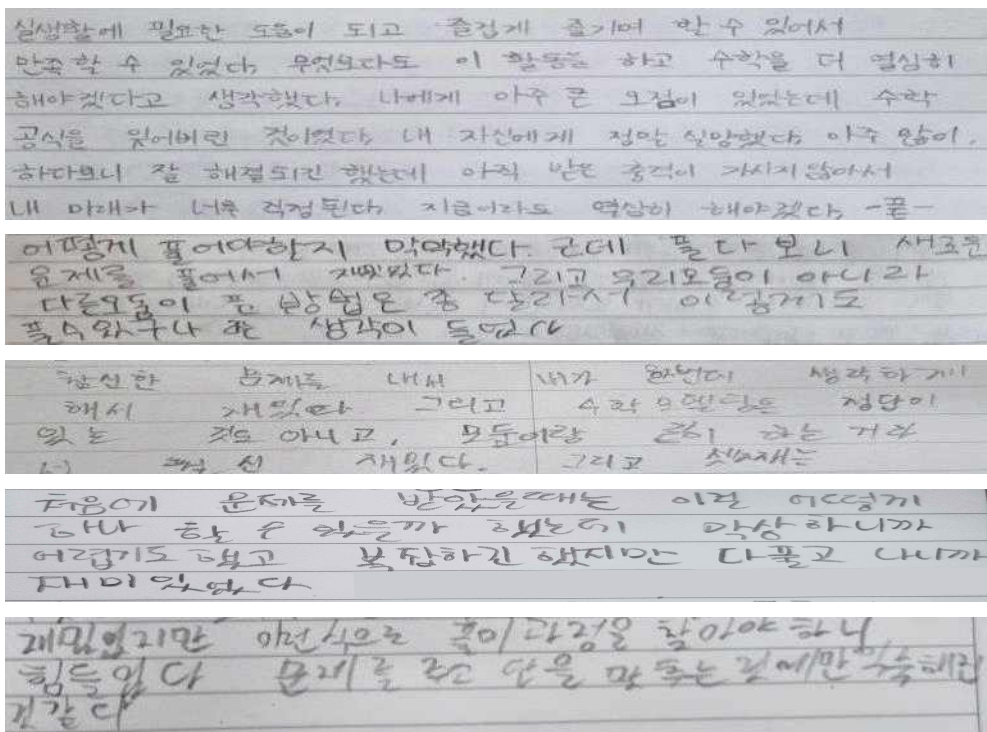 실생활에 필요한 도움이 되고 즐겁게 즐기며 할 수 있어서
만족 할 수 있었다. 무엇보다도 이 활동을 하고 수학을 더 열심히
해야겠다고 생각했다. 나에게 아주 큰 오점이 있었는데 수학
공식을 잊어버린 것이였다. 내 자신에게 정말 실망했다. 아주 많이.
하다보니 잘 해결되긴 했는데 아직 받은 충격이 가시지 않아서
내 미래가 너무 걱정 된다. 지금이라도 열심히 해야겠다. -끝-
어떻게 풀어야할지 막막했다. 근데 풀다 보니 새로운
문제를 풀어서 재밌었다. 그리고 우리모둠이 아니라
다른모둠이 푼 방법은 좀 달라서 이렇게도
풀수있구나 라는 생각이 들었다
참신한 문제를 내서 내가 한번더 생각하게
해서 재밌었다. 그리고 수학모델링은 정답이
있는 것도 아니고, 모둠이랑 같이 하는 거라
재밌다. 그리고
처음에 문제를 받았을때는 이걸 어떻게
하나 할 수 있을까 했는데 막상 하니까
어렵기도 했고 복잡하긴 했지만 다풀고 나니까
재미있었다
재밌었지만 이런식으로 풀이과정을 찾아야 하니
힘들었다 문제를 풀고 답을 맞추는 것에만 익숙해진
것같다